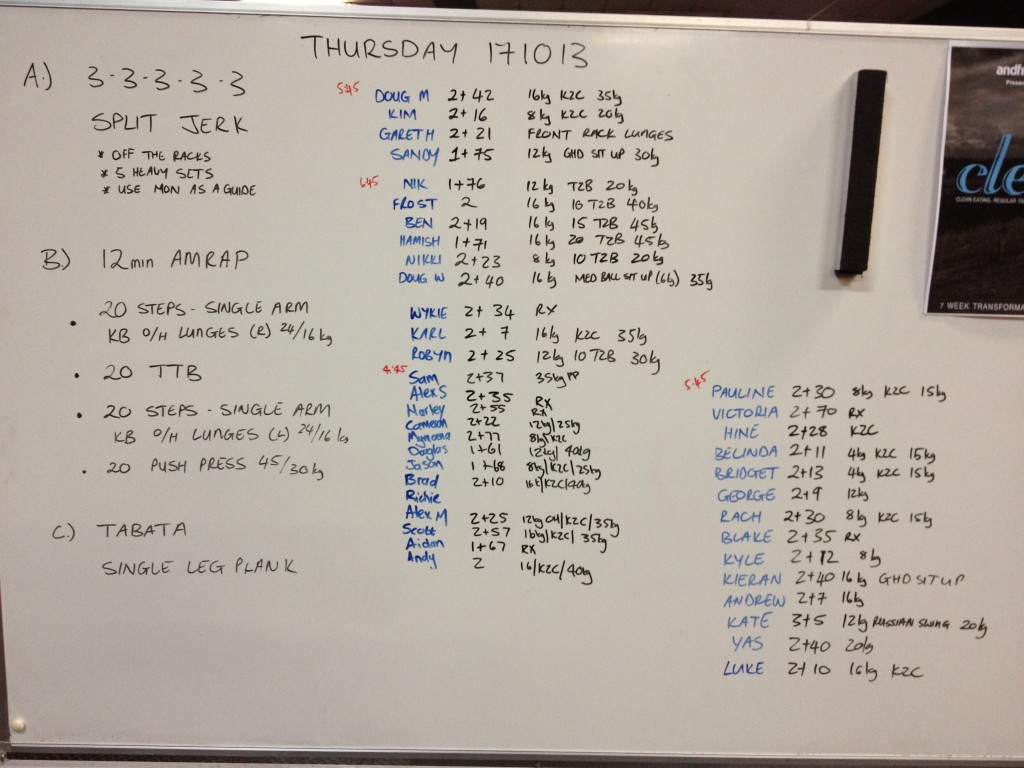 THURSDAY 171013
A.) 3·3·3·3·3
SPLIT JERK
* OFF THE RACKS
* 5 HEAVY SETS
* USE MON AS A GUIDE
B.) 12min AMRAP
• 20 STEPS - SINGLE ARM
KB O/H LUNGES (R) 24/16kg
• 20 TTB
• 20 STEPS - SINGLE ARM
KB O/H LUNGES (L) 24/16kg
• 20 PUSH PRESS 45/30kg
C.) TABATA
SINGLE LEG PLANK
5:45
DOUG M 2+42 16kg K2C 35kg
KIM 2+16 8kg K2C 20kg
GARETH 2+21 FRONT RACK LUNGES
SANDY 1+75 12kg GHD SIT UP 30kg
6:45
NIK 1+76 12kg T2B 20kg
FROST 2 16kg 10 T2B 40kg
BEN 2+19 16kg 15 T2B 45kg
HAMISH 1+71 16kg 20 T2B 45kg
NIKKI 2+23 8kg 10 T2B 20kg
DOUG W 2+40 16kg MED BALL SIT UP (6kg) 35kg
WYKIE 2+34 RX
KARL 2+7 16kg K2C 35kg
ROBYN 2+25 12kg 10 T2B 30kg
4:45
Sam 2+37 35kg PP
Alex S 2+35 RX
Morley 2+55 RX
Cameron 2+22 12kg/25kg
2+77 8kg/K2C
Douglas 1+61 12kg/40kg
Jason 1+68 8kg/K2C/25kg
Brad 2+10 16k/K2C/40kg
Richie
Alex M 2+25 12kg OH/K2C/35kg
Scott 2+57 16kg/K2C/35kg
Aidan 1+67 RX
Andy 2 16/K2C/40kg
5:45
PAULINE 2+30 8kg K2C 15kg
VICTORIA 2+70 RX
HINE 2+28 K2C
BELINDA 2+11 4kg K2C 15kg
BRIDGET 2+13 4kg K2C 15kg
GEORGE 2+9 12kg
RACH 2+30 8kg K2C 15kg
BLAKE 2+35 RX
KYLE 2+12 8kg
KIERAN 2+40 16kg GHD SIT UP
ANDREW 2+7 16kg
KATE 3+5 12kg RUSSIAN SWING 20kg
YAS 2+40 20kg
LUKE 2+10 16kg K2C
andfu
Presen
cle
CLEAN EATING. REGULAR TR
7 WEEK TRANSFORMA